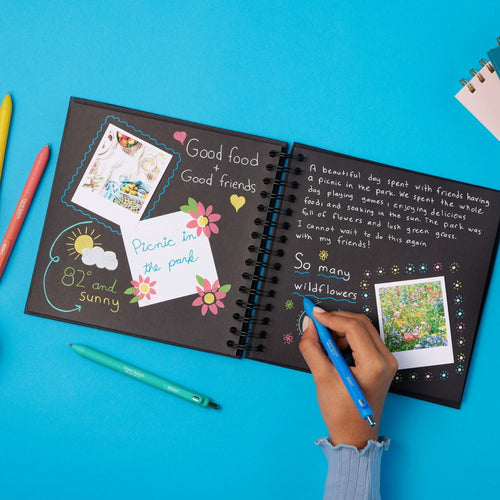 Good food
+
Good friends
Picnic in
the park
82° and
sunny
A beautiful day spent with friends having
a picnic in the park. We spent the whole
day playing games, enjoying delicious
foods and soaking in the sun. The park was
full of flowers and lush green grass.
I cannot wait to do this again
with my friends!
So many
wildflowers